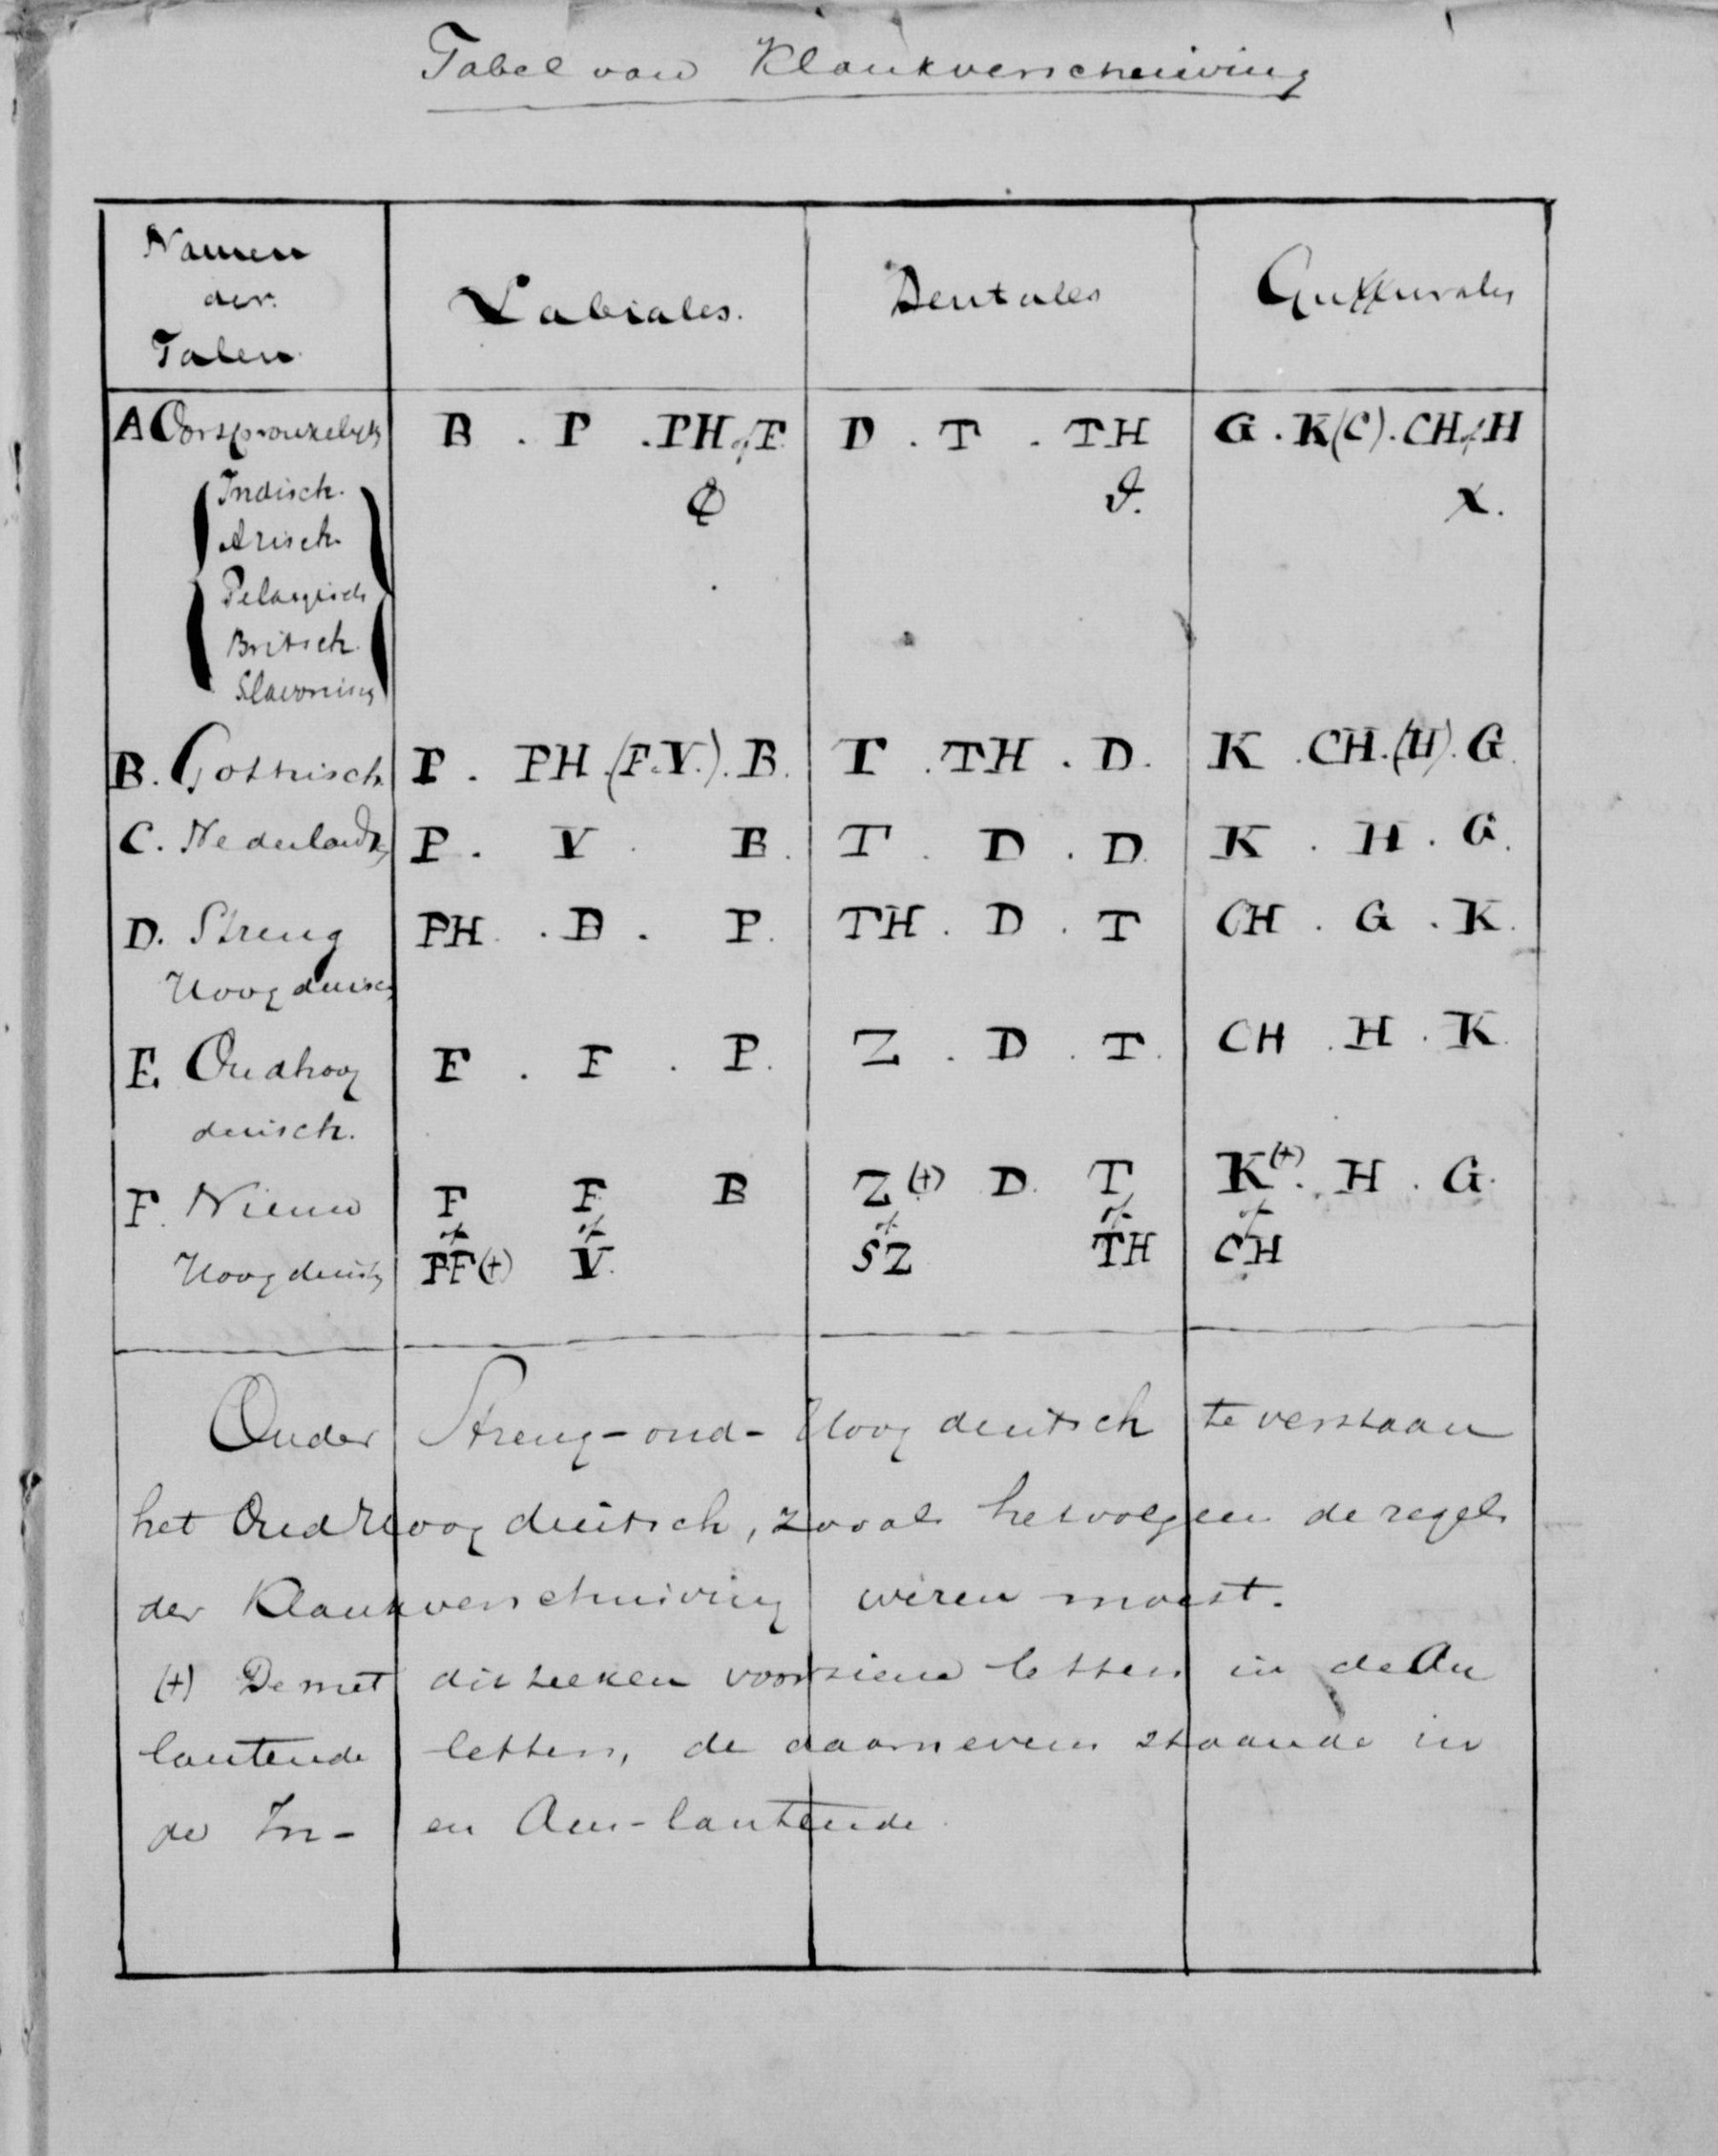 Tabel van Klankverschuiving
Namen der Talen Labiales. Dentales Gutturales
A Oorspronkelijk B . P . PH of F D . T . TH G . K(C) . CH of H
Indisch. Φ ϑ. X.
Arisch.
Pelasgisch
Britsch.
Slavonisch
B. Gothisch P . PH.(F.V.). B. T . TH . D. K . CH.(H). G.
C. Nederlands P . V . B. T . D . D. K . H . G.
D. Streng PH . B . P. TH . D . T CH . G . K.
Hoogduisch
E. Oudhoog F . F . P. Z . D . T. CH . H . K.
duisch.
F. Nieuw F F B Z (+) D. T K(+). H . G.
of of of of of
Hoogduitsch PF(+) V. SZ TH CH
Onder Streng-oud-Hoogdeutsch te verstaan
het Oudhoogdeutsch, zooals het volgens de regels
der Klankverschuiving wezen moest.
(+) De met dit teeken voorziene letters in de An
lautende letters, de daarnevens staande in
de In- en Aus-lautende.